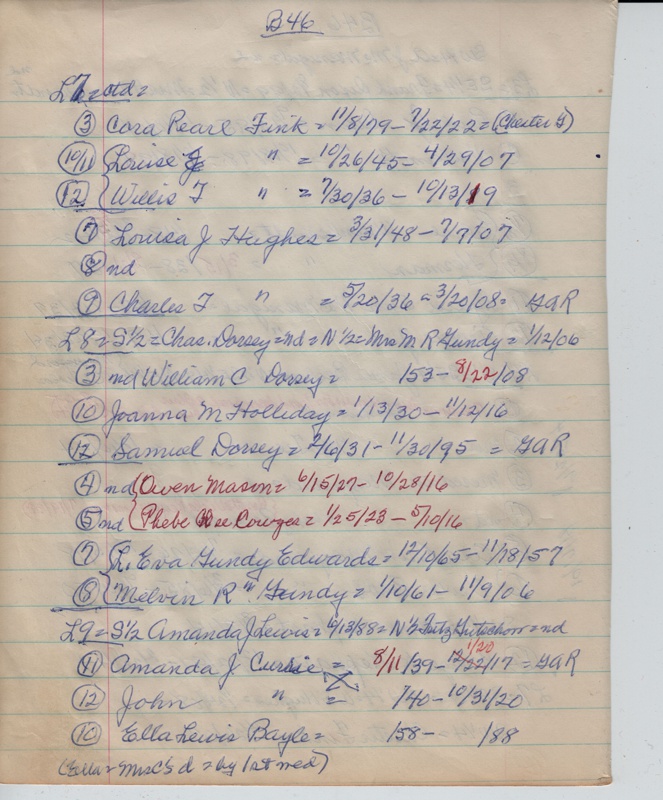 B46
L7=ctd=
③ Cora Pearl Fink = 11/8/79 - 7/22/22 = (Chester G)
10/11 Louise J " = 10/26/45 - 4/29/07
⑫ Willis T " = 7/30/36 - 10/13/19
⑦ Louisa J Hughes = 3/31/48 - 7/7/07
⑧ nd
⑨ Charles T " = 5/20/36 - 3/20/08 = GAR
L8 = S 1/2 = Chas. Dorsey = nd = N 1/2 = Mrs M R Gundy = 1/12/06
③ nd William C Dorsey = /53 - 8/22/08
⑩ Joanna M Holliday = 1/13/30 - 11/12/16
⑫ Samuel Dorsey = 2/6/31 - 11/30/95 = GAR
④ nd Owen Mason = 6/15/27 - 10/28/16
⑤ nd Phebe Cowges = 1/25/23 - 5/10/16
⑦ L. Eva Gundy Edwards = 12/10/65 - 11/18/57
⑧ Melvin R " Gundy = 1/10/61 - 11/9/06
L9 = S 1/2 Amanda J Lewis = 6/13/88 = N 1/2 = nd
1/20
⑪ Amanda J Currie = 8/11/39 - 12/22/17 = GAR
⑫ John " = /40 - 10/31/20
⑩ Ella Lewis Bayle = /58 - /88
(Ella = Mrs C's d = by 1st wed)